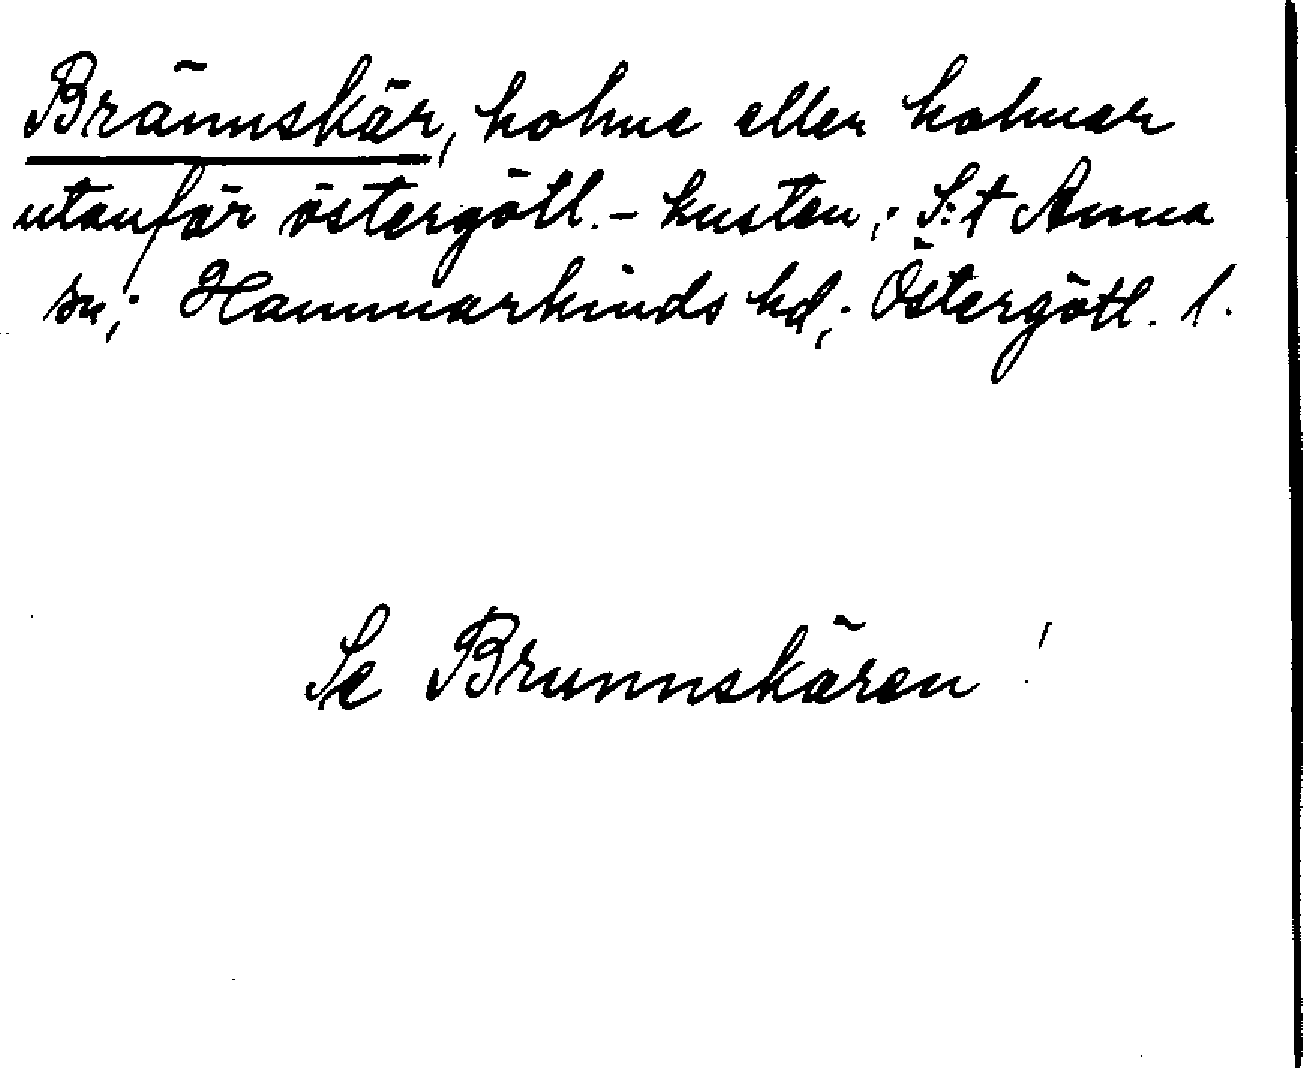 Brännskär, holme eller holmar
utanför östergötl.-kusten; S:t Anna
sn; Hammarkinds hd; Östergötl. l.
Se Brunnskären!